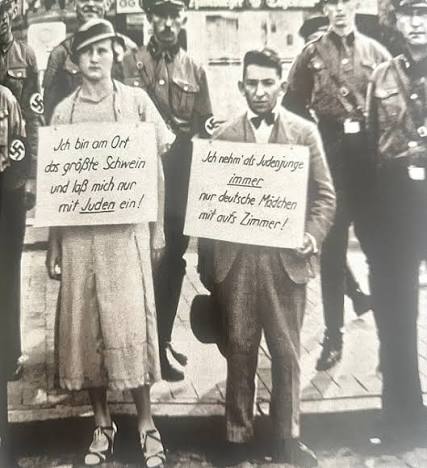 Ich bin am Ort
das größte Schwein
und laß mich nur
mit Juden ein!
Ich nehm' als Judenjunge
immer
nur deutsche Mädchen
mit aufs Zimmer!